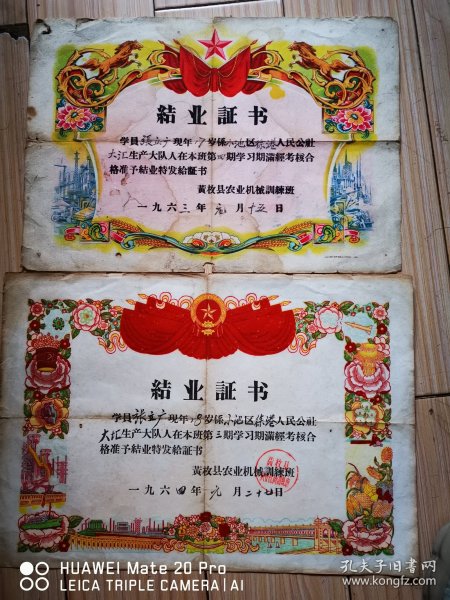 結业証书
学員張立广现年17岁係小池区綠港人民公社
大汇生产大队人在本班第四期学习期滿經考核合
格准予結业特发給証书
黄枚县农业机械訓練班
一九六三年元月十五日
結业証书
学員張立广现年18岁係小池区綠港人民公社
大汇生产大队人在本班第三期学习期滿經考核合
格准予結业特发給証书
黄枚县农业机械訓練班
一九六四年元月二十七日
HUAWEI Mate 20 Pro
LEICA TRIPLE CAMERA | AI
孔夫子旧书网
www.kongfz.com